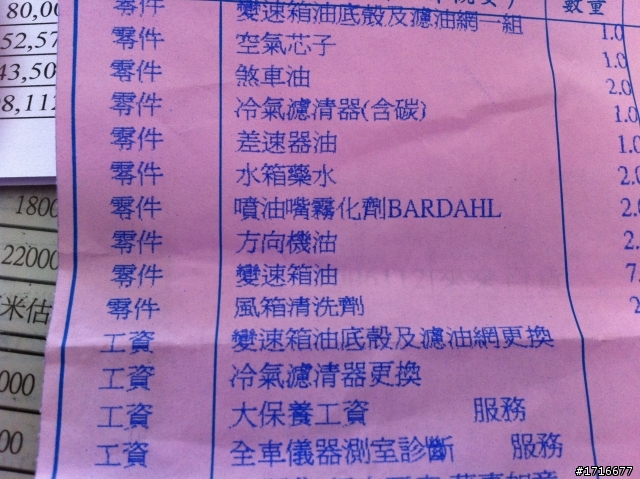 數量
80,0
零件 變速箱油底殼及濾油網一組 1.0
52,57
零件 空氣芯子 1.0
43,50
零件 煞車油 2.0
8,112
零件 冷氣濾清器(含碳) 1.0
零件 差速器油 1.0
零件 水箱藥水 2.0
1800
零件 噴油嘴霧化劑BARDAHL 2.0
22000
零件 方向機油 2.
零件 變速箱油 7.
米估
零件 風箱清洗劑 2
工資 變速箱油底殼及濾油網更換
000
工資 冷氣濾清器更換
工資 大保養工資 服務
00
工資 全車儀器測室診斷 服務
#1716677